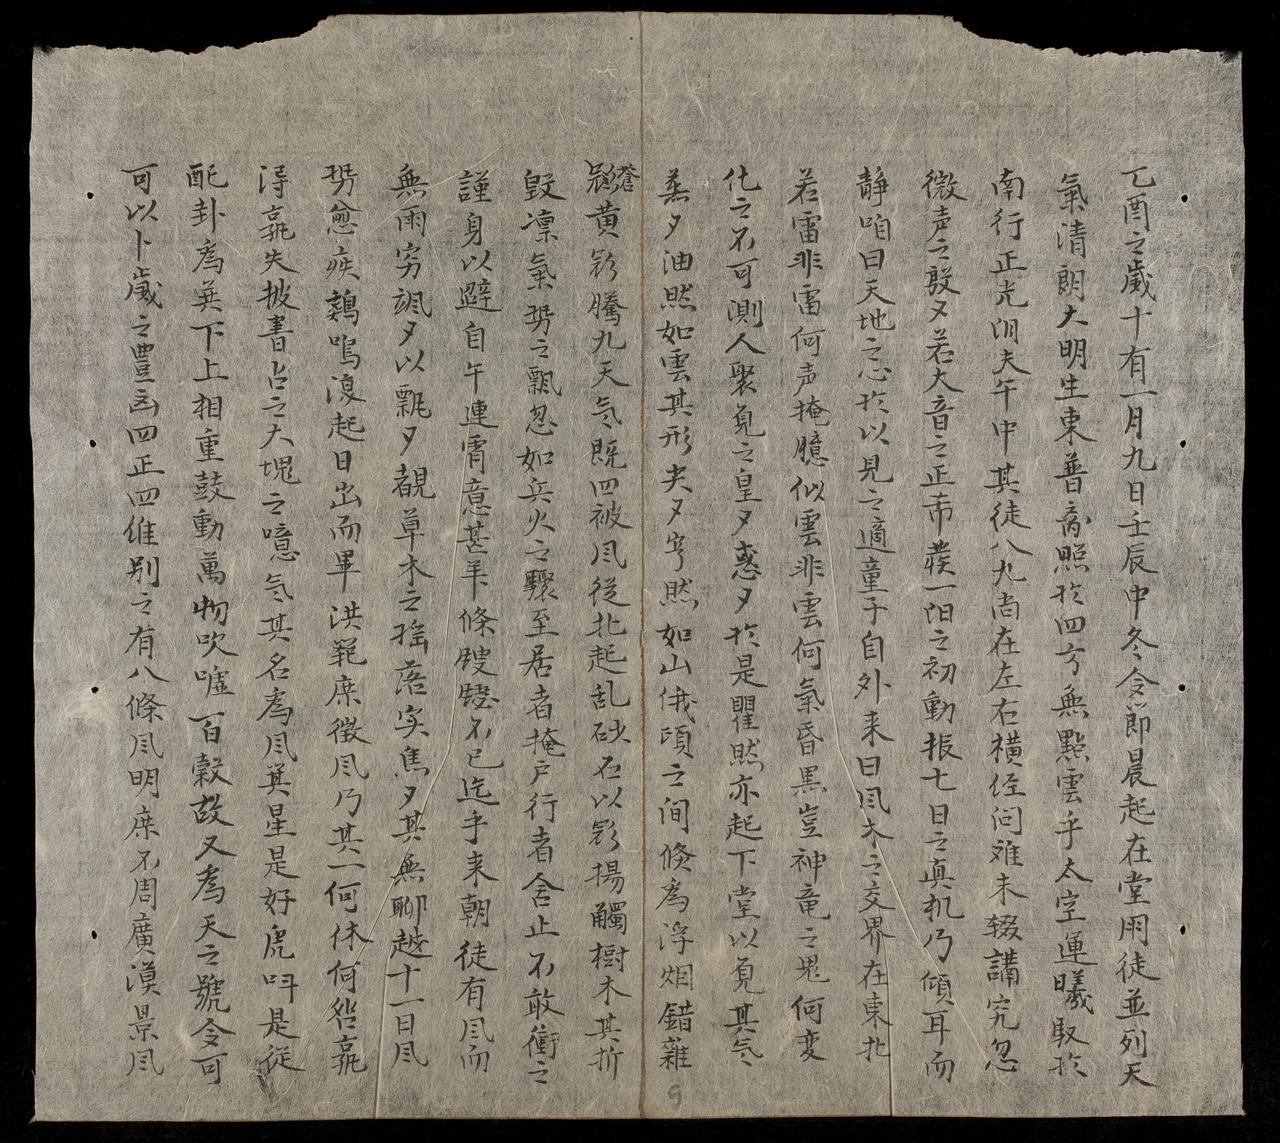 乙酉之歲十有一月九日壬辰中冬令節晨起在堂用徒並列天
氣清朗大明生東普高照於四方無點雲乎太空運曦馭於
南行正光明夫午中其徒八九尚在左右橫經问难未輟講究忽
微声之殷夕若大音之正希蘉一阳之初動振七日之真机乃傾耳而
静咱曰天地之心於以見之適童子自外来曰风木之交界在東北
若雷非雷何声掩臆似雲非雲何氣昏黒豈神竜之鬼何変
化之不可測人聚覓之皇夕惑夕於是瞿然亦起下堂以覓其气
蒸夕油然如雲其形夫夕穹然如山俄頃之间倏為浮烟錯雜
蒼影黄影騰九天气既四被风従北起乱砂石以影揚觸樹木其折
毀凛氣势之飄忽如兵火之驟至居者掩戸行者舍止不敢衝之
謹身以避自午連宵意甚羊條餿餿不已迄乎来朝徒有风而
無雨穷颯夕以飄夕覩草木之揺落寔焦夕其無聊越十一日风
势愈疾鷄鳴復起日出而畢洪範庶徴风乃其一何休何咎嬴
得嬴失披書占之大塊之噫气其名為风箕星是好虎呌是従
配卦為巽下上相重鼓動萬物吹嘘百穀故又為天之號令可
可以卜歲之豊凶四正四維别之有八條风明庶不周廣漠景风
9